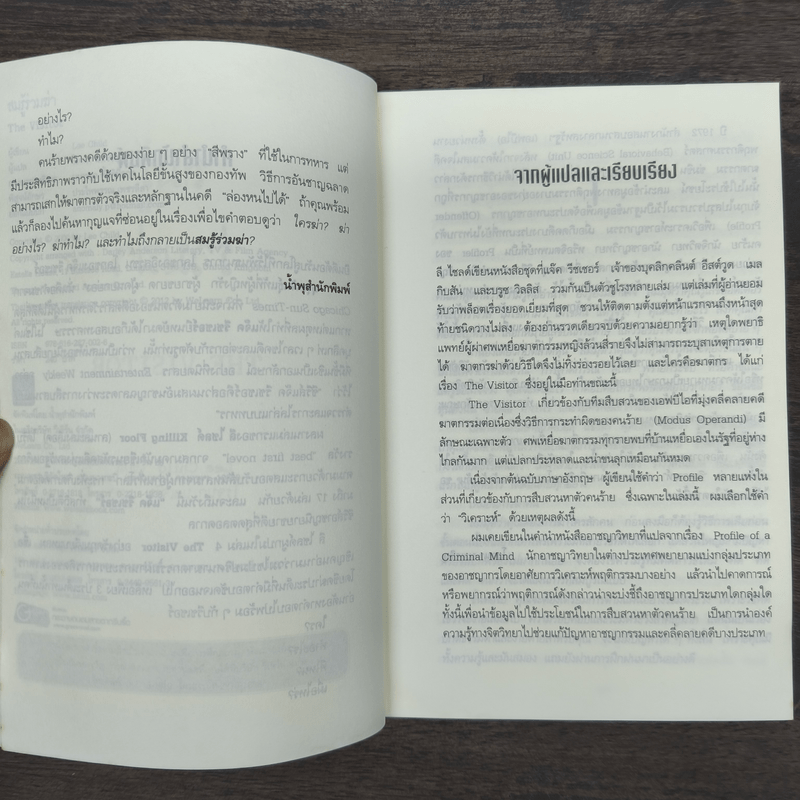 อย่างไร?
ทำไม?
คนร้ายพรางคดีด้วยของง่าย ๆ อย่าง “สีพราง” ที่ใช้ในการทหาร แต่
มีประสิทธิภาพราวกับใช้เทคโนโลยีขั้นสูงของกองทัพ วิธีการอันชาญฉลาด
สามารถเสกให้ฆาตกรตัวจริงและหลักฐานในคดี “ล่องหนไปได้” ถ้าคุณพร้อม
แล้วก็ลองไปค้นหากุญแจที่ซ่อนอยู่ในเรื่องเพื่อไขคำตอบดูว่า ใครฆ่า? ฆ่า
อย่างไร? ฆ่าทำไม? และทำไมถึงกลายเป็นสมรู้ร่วมฆ่า?
น้ำพุสำนักพิมพ์
จากผู้แปลและเรียบเรียง
ลี ไชลด์เขียนหนังสือชุดที่แจ๊ค รีชเชอร์ เจ้าของบุคลิกคลินต์ อีสต์วูด เมล
กิบสัน และบรูซ วิลลิส รวมกันเป็นตัวชูโรงหลายเล่ม แต่เล่มที่ผู้อ่านยอม
รับว่าพล็อตเรื่องยอดเยี่ยมที่สุด ชวนให้ติดตามตั้งแต่หน้าแรกจนถึงหน้าสุด
ท้ายชนิดวางไม่ลง ต้องอ่านรวดเดียวจบด้วยความอยากรู้ว่า เหตุใดพยาธิ
แพทย์ผู้ผ่าศพเหยื่อฆาตกรรมหญิงล้วนสี่รายจึงไม่สามารถระบุสาเหตุการตาย
ได้ ฆาตกรฆ่าด้วยวิธีใดจึงไม่ทิ้งร่องรอยไว้เลย และใครคือฆาตกร ได้แก่
เรื่อง The Visitor ซึ่งอยู่ในมือท่านขณะนี้
The Visitor เกี่ยวข้องกับทีมสืบสวนของเอฟบีไอที่มุ่งคลี่คลายคดี
ฆาตกรรมต่อเนื่องซึ่งวิธีการกระทำผิดของคนร้าย (Modus Operandi) มี
ลักษณะเฉพาะตัว ศพเหยื่อฆาตกรรมทุกรายพบที่บ้านเหยื่อเองในรัฐที่อยู่ห่าง
ไกลกันมาก แต่แปลกประหลาดและน่าขนลุกเหมือนกันหมด
เนื่องจากต้นฉบับภาษาอังกฤษ ผู้เขียนใช้คำว่า Profile หลายแห่งใน
ส่วนที่เกี่ยวข้องกับการสืบสวนหาตัวคนร้าย ซึ่งเฉพาะในเล่มนี้ ผมเลือกใช้คำ
ว่า “วิเคราะห์” ด้วยเหตุผลดังนี้
ผมเคยเขียนในคำนำหนังสืออาชญาวิทยาที่แปลจากเรื่อง Profile of a
Criminal Mind นักอาชญาวิทยาในต่างประเทศพยายามแบ่งกลุ่มประเภท
ของอาชญากรโดยอาศัยการวิเคราะห์พฤติกรรมบางอย่าง แล้วนำไปคาดการณ์
หรือพยากรณ์ว่าพฤติการณ์ดังกล่าวน่าจะบ่งชี้ถึงอาชญากรประเภทใดกลุ่มใด
ทั้งนี้เพื่อนำข้อมูลไปใช้ประโยชน์ในการสืบสวนหาตัวคนร้าย เป็นการนำองค์
ความรู้ทางจิตวิทยาไปช่วยแก้ปัญหาอาชญากรรมและคลี่คลายคดีบางประเภท